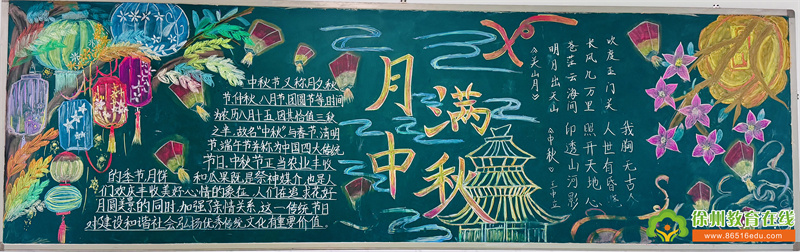 中秋节又称月夕秋
节仲秋、八月节、团圆节等时间
为农历八月十五,因其恰值三秋
之半,故名"中秋"与春节、清明
节、端午节并称为中国四大传统
节日,中秋节正当农业丰收
的季节月饼和瓜果既是祭神媒介,也是人
们欢庆丰收美好心情的寄托、人们在追求花好
月圆美景的同时,加强亲情关系,这一传统节日
对建设和谐社会弘扬优秀传统文化有重要价值
月满
中秋
《关山月》
明月出天山
苍茫云海间
长风几万里
《中秋》
印透山河影
照开天地心
人世有昏
我胸无古人
徐州教育在线
www.86516edu.com